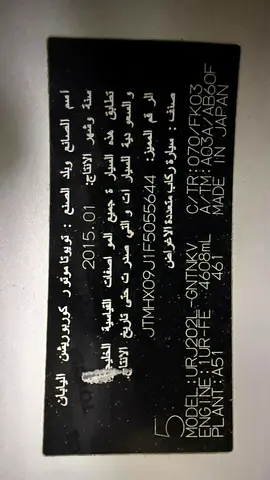 اسم الصانع وبلد الصنع : تويوتا موتور كوربوريشن اليابان
سنة وشهر الانتاج: 2015.01
تطابق هذه السيارة جميع المواصفات القياسية
والسعودية للسيارات والتي صدرت حتى تاريخ الانتاج.
الرقم المميز: JTMHX09J1F5055644
صنف : سيارة ركاب متعددة الاغراض
5
MODEL:URJ202L-GNTNKV C/TR:070/FK03
ENGINE:1UR-FE 4608mL A/TM:A03A/AB60F
PLANT:A51 461 MADE IN JAPAN